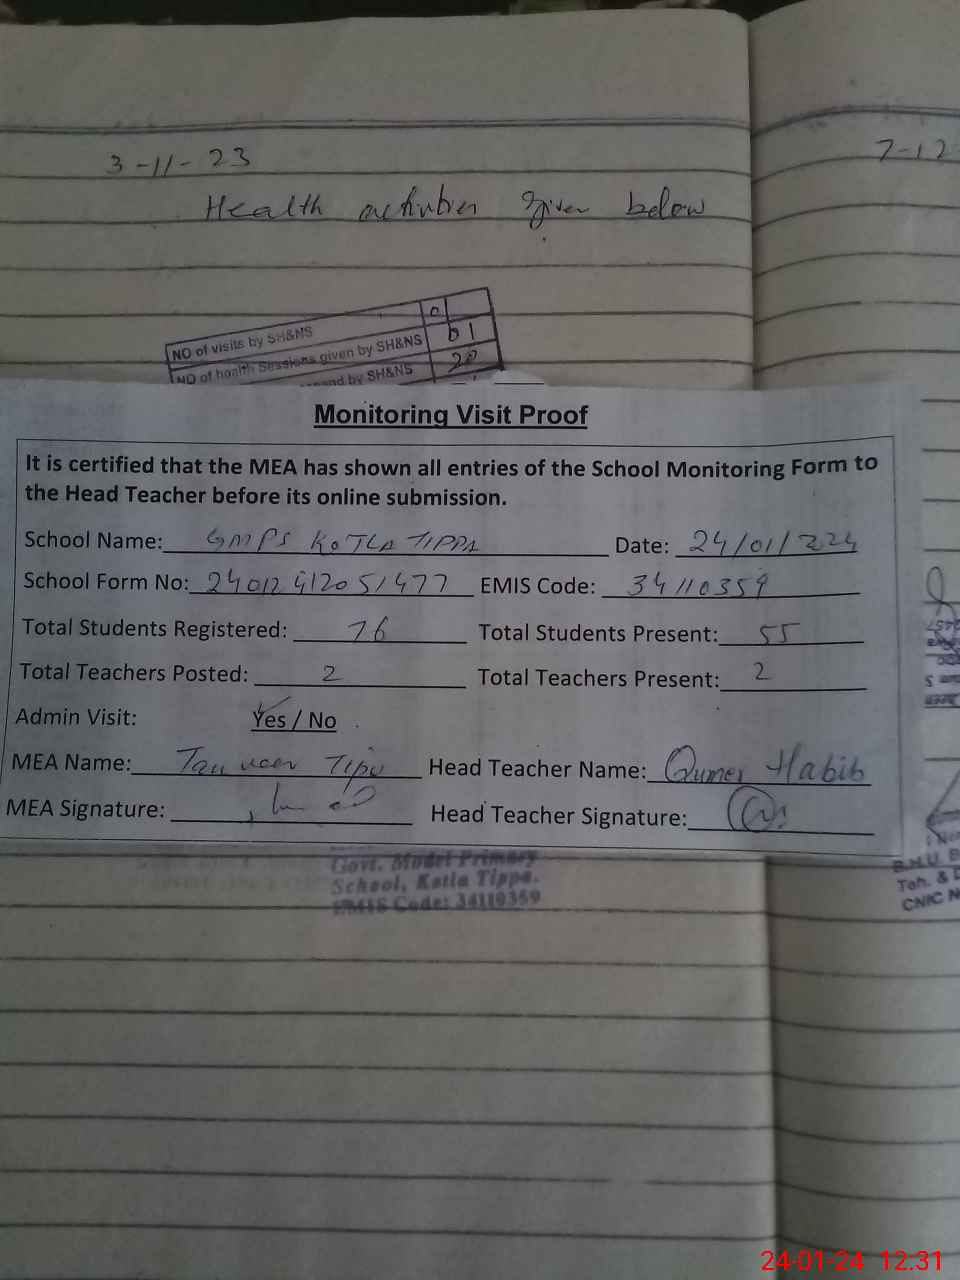 3-11-23
7-12
Health activities given below
NO of visits by SH&NS 0
NO of health Sessions given by SH&NS 01
by SH&NS 20
Monitoring Visit Proof
It is certified that the MEA has shown all entries of the School Monitoring Form to
the Head Teacher before its online submission.
School Name: GMPS KOTLA TIPPA Date: 24/01/2024
School Form No: 24012412051477 EMIS Code: 34110359
Total Students Registered: 76 Total Students Present: 55
Total Teachers Posted: 2 Total Teachers Present: 2
Admin Visit: Yes / No
MEA Name: Tanveer Tipu Head Teacher Name: Qumer Habib
MEA Signature: Head Teacher Signature:
Govt. Model Primary
School, Kotla Tippa.
EMIS Code: 34110359
B.H.U. B
Teh. & D
CNIC N
24-01-24 12.31